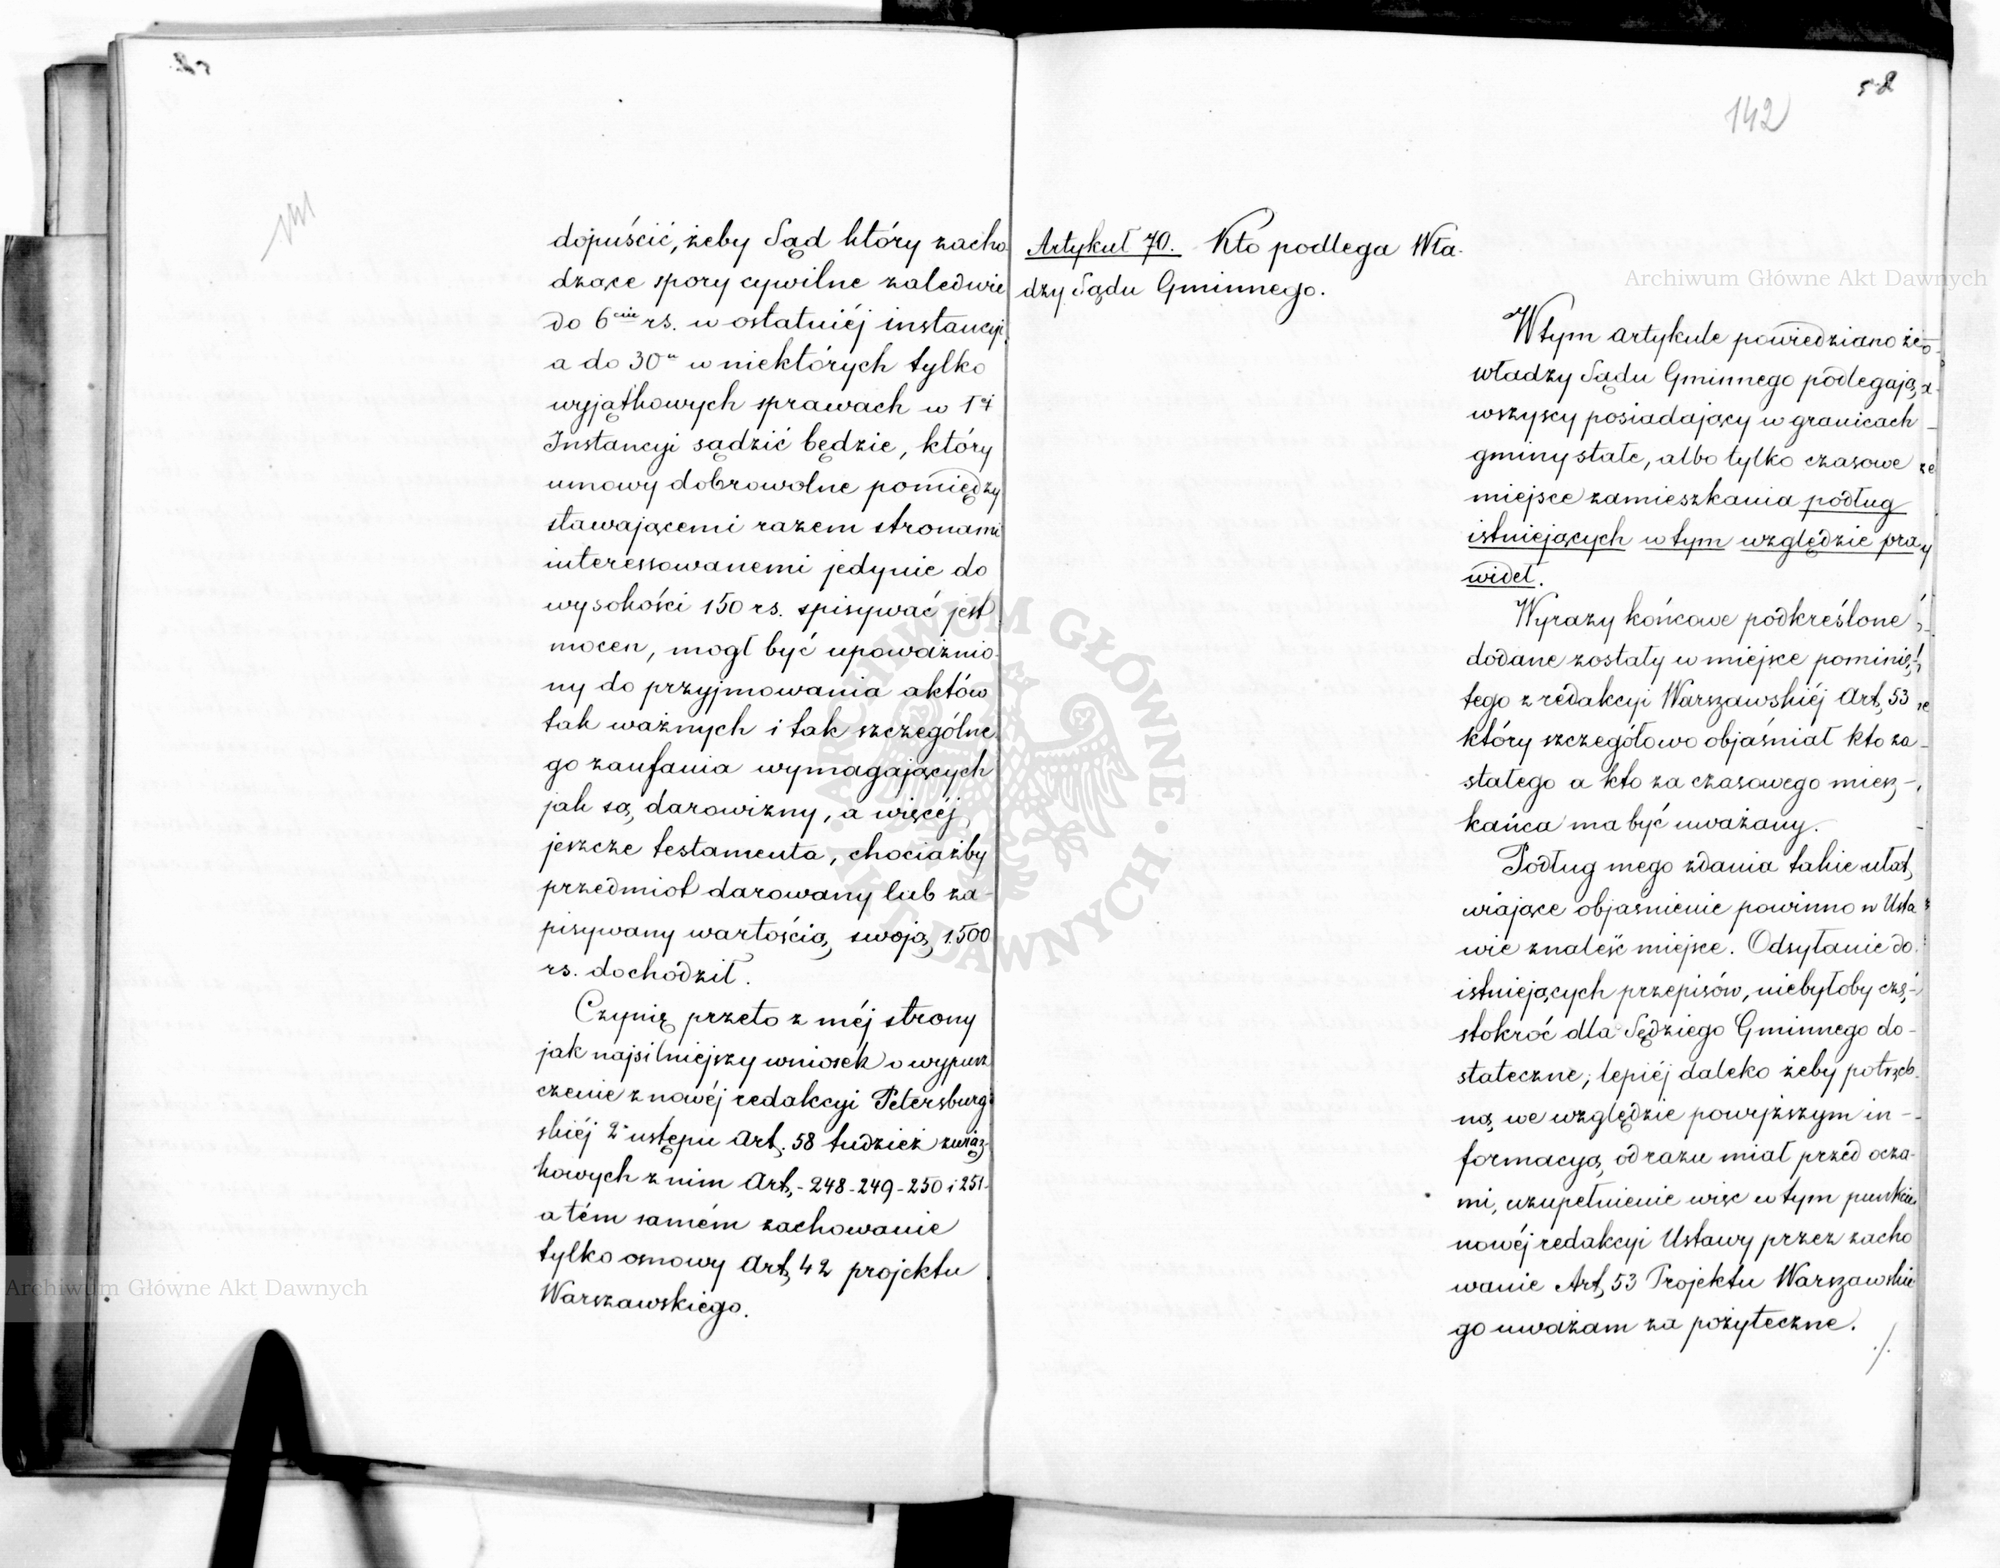 dopuścić, żeby Sąd który zacho
dzące spory cywilne zaledwie
do 6ciu rs. w ostatniéj instancyi,
a do 30u w niektórych tylko
wyjątkowych sprawach w 1éj
Instancyi sądzić będzie, który
umowy dobrowolne pomiędzy
stawającemi razem stronami
interessowanemi jedynie do
wysokości 150 rs. spisywać jest
mocen, mogł być upoważnio-
ny do przyjmowania aktów
tak ważnych i tak szczególne
go zaufania wymagających
jak są, darowizny, a więcéj
jeszcze testamenta, chociażby
przedmiot darowany lub za-
pisywany wartością swoją 1500
rs. dochodził.
Czynię przeto z méj strony
jak najsilniejszy wniosek o wypusz
czenie z nowéj redakcyi Petersburg
skiéj 2o ustępu Art. 58 tudzież związ-
kowych z nim Art. - 248 - 249 - 250 i 251 -
a tém samém zachowanie
tylko osnowy Art, 42 projektu
Warszawskiego.
58
142
Artykuł 70. Kto podlega Wła-
dzy Sądu Gminnego.
W tym artykule powiedziano że
władzy Sądu Gminnego podlegają
wszyscy posiadający w granicach
gminy stałe, albo tylko czasowe
miejsce zamieszkania podług
istniejących w tym względzie pra
wideł.
Wyrazy końcowe podkreślone
dodane zostały w miejsce pominię-
tego z redakcyi Warszawskiéj Art, 53
który szczegółowo objaśniał kto za
stałego a kto za czasowego miesz-
kańca ma być uważany.
Podług mego zdania takie ułat
wiające objaśnienie powinno w Usta
wie znaleść miejsce. Odsyłanie do
istniejących przepisów, niebyłoby czę-
stokroć dla Sędziego Gminnego do-
stateczne; lepiéj daleko żeby potrzeb-
ną we względzie powyższym in-
formacyą od razu miał przed ocza-
mi, uzupełnienie więc w tym punkcie
nowéj redakcyi Ustawy przez zacho
wanie Art, 53 Projektu Warszawskie
go uważam za pożyteczne.
./.
Archiwum Główne Akt Dawnych
Archiwum Główne Akt Dawnych
ARCHIWUM GŁÓWNE · AKT DAWNYCH ·